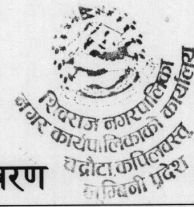 शिवराज नगरपालिका
नगर कार्यपालिकाको कार्यालय
चन्द्रौटा, कपिलवस्तु
लुम्बिनी प्रदेश
रण